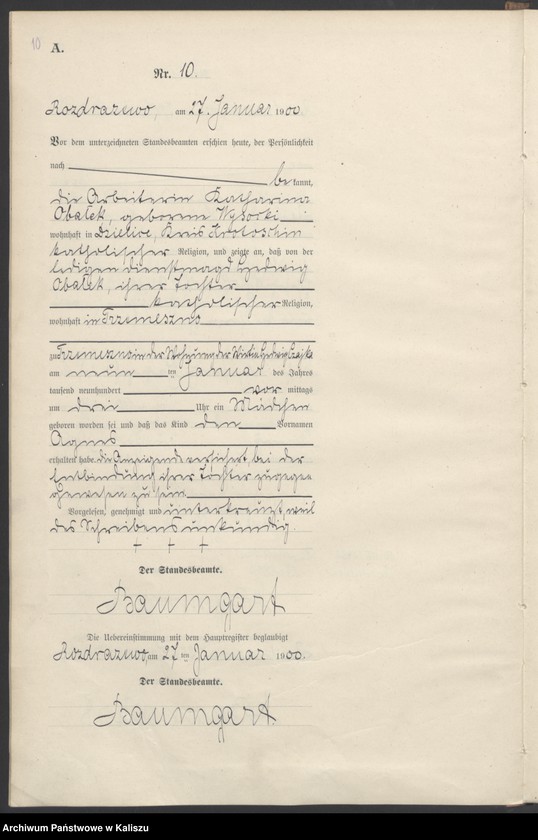 10
A.
Nr. 10.
Rozdrazewo, am 27. Januar 1900.
Vor dem unterzeichneten Standesbeamten erschien heute, der Persönlichkeit
nach
bekannt,
die Arbeiterin Katharina
Obalek, geborene Wysocki
wohnhaft in Dzielice, Kreis Krotoschin
katholischer Religion, und zeigte an, daß von der
ledigen Dienstmagd Hedwig
Obalek, ihrer Tochter
katholischer Religion,
wohnhaft in Trzemeszno
zu Trzemeszno in der Wohnung der Hedwig
am neun ten Januar des Jahres
tausend neunhundert vor mittags
um drei Uhr ein Mädchen
geboren worden sei und daß das Kind den Vornamen
Agnes
erhalten habe. Die Anzeigende versichert, bei der
Entbindung ihrer Tochter zugegen
gewesen zu sein.
Vorgelesen, genehmigt und unterkreuzt, weil
des Schreibens unkundig.
+ + +
Der Standesbeamte.
Baumgart
Die Uebereinstimmung mit dem Hauptregister beglaubigt
Rozdrazewo, am 27 ten Januar 1900.
Der Standesbeamte.
Baumgart.
Archiwum Państwowe w Kaliszu